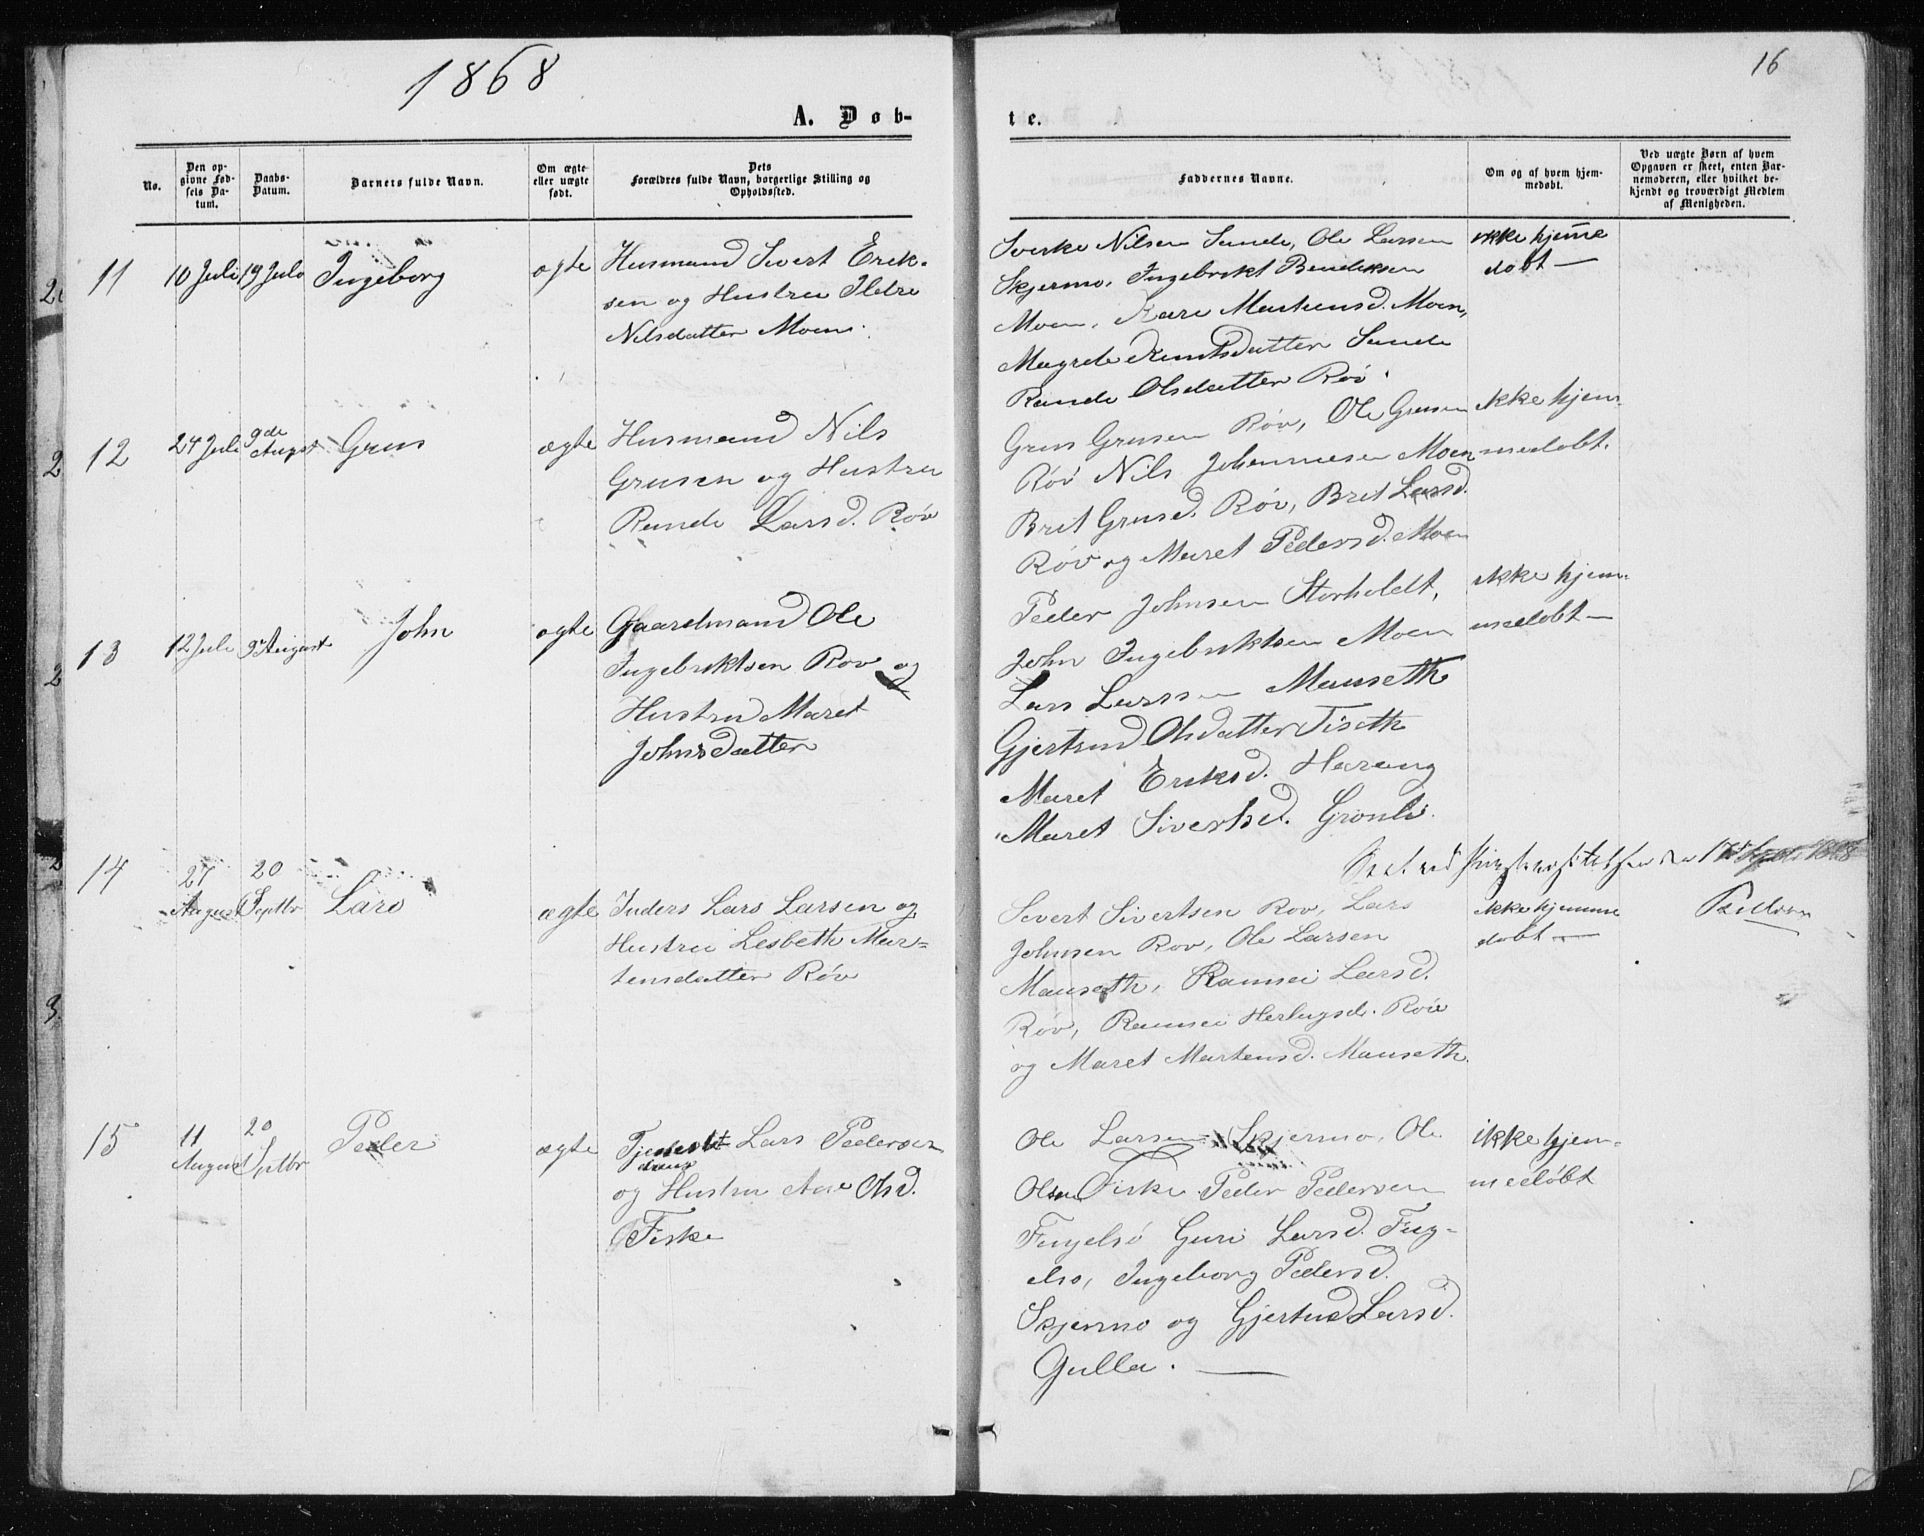 1868
16
A. Døb-
te.
No.
Den op-
givne Fød-
sels Da-
tum.
Daabs-
Datum.
Barnets fulde Navn.
Om ægte
eller uægte
født.
Dets
Forældres fulde Navn, borgerlige Stilling og
Opholdssted.
Faddernes Navne.
Om og af hvem hjem-
medøbt.
Ved uægte Børn af hvem
Opgaven er skeet, enten Bar-
nemoderen, eller hvilket be-
kjendt og troværdigt Medlem
af Menigheden.
11
10 Juli
19 Juli
Ingeborg
ægte
Husmand Sivert Erik-
sen og Hustru
Nilsdatter Moen.
Sverke Nilsen Sande, Ole Larsen
Skjermo, Ingebrikt Bendiksen
Moen, Kari Martensd. Moen,
Magrete Knutsdatter Sande
Rande Olsdatter Røv.
ikke hjeme
døbt —
12
24 Juli
9de
Augst
Grus
ægte
Husmand Nils
Grusen og Hustru
Rande Larsd. Røv
Grus Grusen Røv, Ole Grusen
Røv Nils Johannesen Moen
Brit Grusd. Røv, Brit Larsd.
Røv og Maret Pedersd. Moen
ikke hjem-
medøbt.
13
12 Juli
9 August
John
ægte
Gaardmand Ole
Ingebriktsen Rov og
Hustru Maret
Johnsdatter
Peder Johnsen Storholdt,
John Ingebriktsen Moen
Lars Larsen Mauseth
Gjertrud Olsdatter Tiseth
Maret Eriksd. Harang
Maret Sivertsd. Grønli.
ikke hjem-
medøbt —
14
27
August
20
Septbr
Lars
ægte
Inders Lars Larsen og
Hustru Lesbeth Mar-
tensdatter Røv
Sivert Sivertsen Rov, Lars
Johnsen Rov, Ole Larsen
Mauseth, Rannei Larsd.
Røv, Rannei Herlugsd. Røv
og Maret Martensd. Mauseth.
ikke hjemme
døbt —
15
11
August
20
Septbr
Peder
ægte
Lars Pedersen
og Hustru Ane Olsd.
Fiske
Ole Larsen Skjermo, Ole
Olsen Fiske Peder Pedersen
Fugelsø Guri Larsd. Fug-
elsø, Ingeborg Pedersd.
Skjermo og Gjertrud Larsd.
Gulla. —
ikke hjem-
medøbt